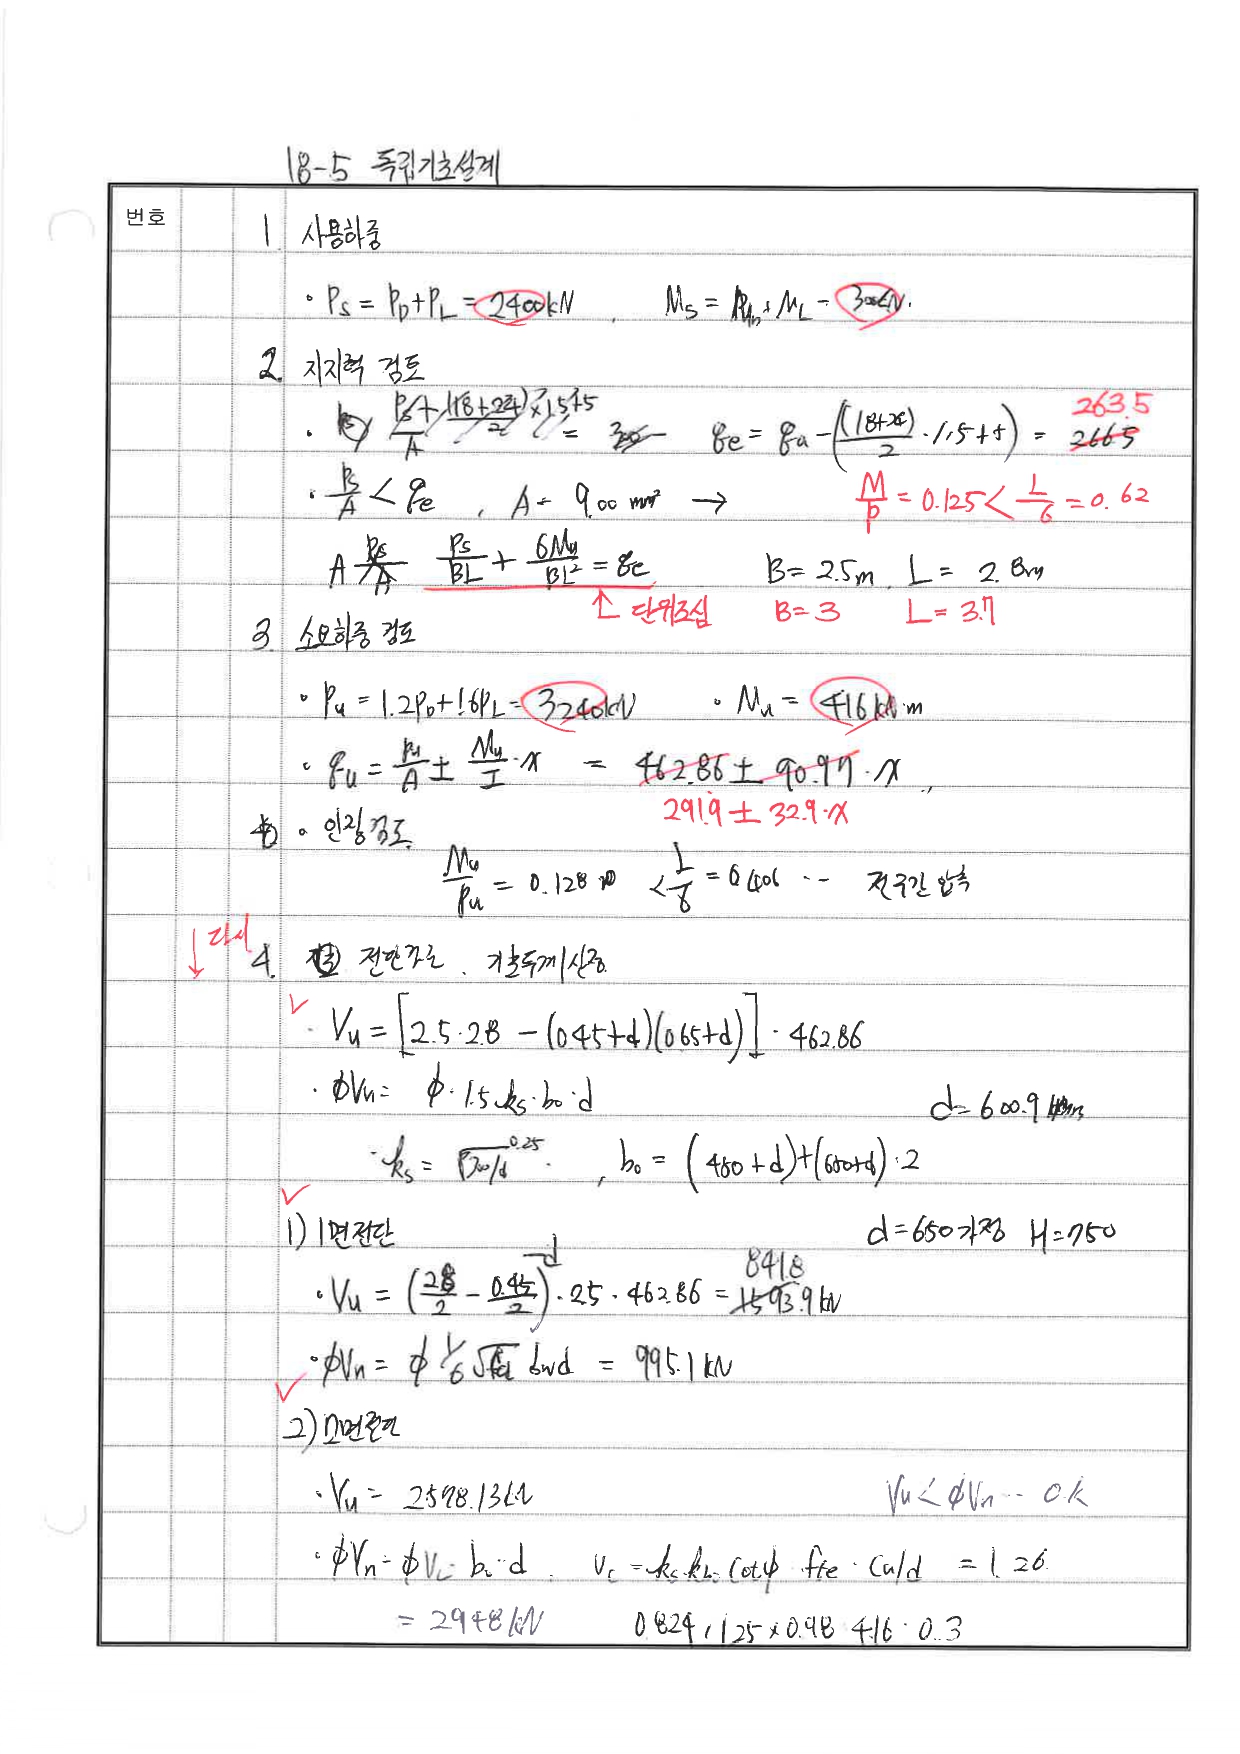 18-5 독립기초설계
번호
1. 사용하중
· Ps = PD+PL = 2400kN , Ms = + ML =
2. 지지력 검토
· Ps + (18+24)/2 × 1.5+5 / A = qe = qa - ((18+24)/2 · 1.5+5) = 2665 263.5
· Ps/A < qe , A = 9.00 mm² → M/P = 0.125 < L/6 = 0.62
A Ps/A Ps/BL + 6Mu/BL² = qe B = 2.5m, L = 2.8m
↑ 단위조심 B = 3 L = 3.7
3. 소요하중 검토
· Pu = 1.2PD+1.6PL = 3240kN · Mu = 416kN·m
· qu = Pu/A ± Mu/I · x = 462.86 ± 90.97 · x
291.9 ± 32.9·x
· 인장검토
Mu/Pu = 0.128 m < L/6 = 0.406 ·· 전구간 압축
↓ 다시
4. 전단강도 . 기초두께 산정
✓ · Vu = [2.5·2.8 - (0.45+d)(0.65+d)] · 462.86
· φVn = φ · 1.5 ks · bo · d d = 600.9 mm
· ks = (300/d)^0.25 , bo = (450+d)+(650+d)·2
✓ 1) 1면전단 d=650가정 H=750
· Vu = (2.8/2 - 0.45/2 - d) · 2.5 · 462.86 = 1593.9 kN 841.8
· φVn = φ 1/6 √fck bwd = 995.1 kN
✓ 2) 2면전단
· Vu = 2598.13kN Vu < φVn ·· ok
· φVn = φ Vc · bo · d . vc = ks kbo cotψ fte · cu/d = 1.26
= 2948kN 0.824 × 1.25 × 0.98 · 4.16 · 0.3